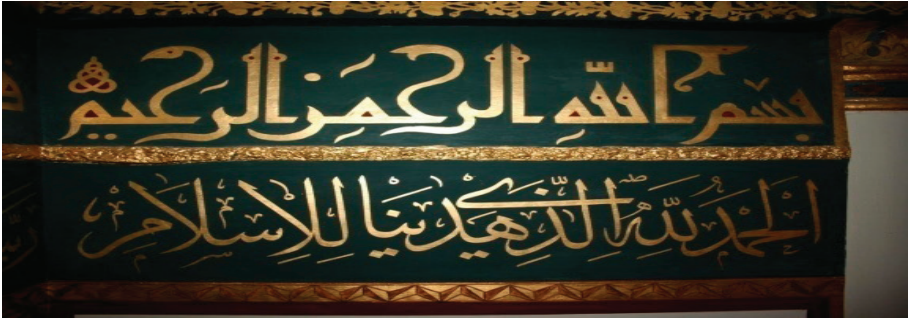 بسم الله الرحمن الرحيم
الحمد لله الذي هدينا للإسلام